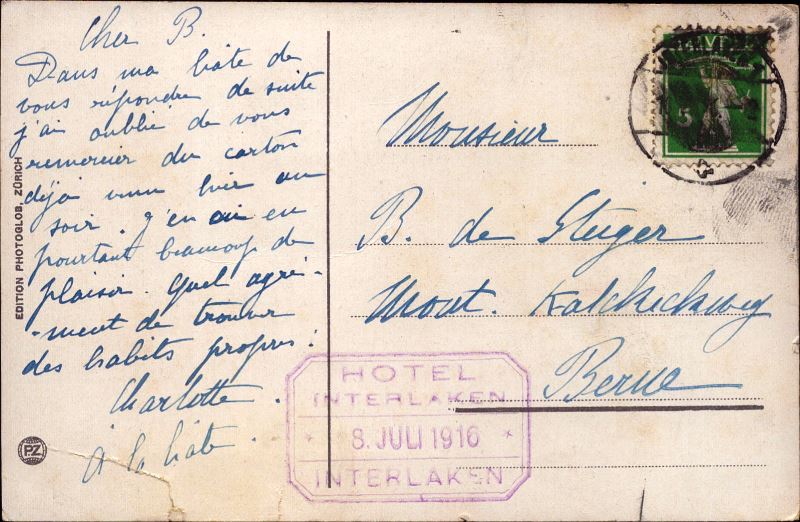 Cher B.
Dans ma hâte de
vous répondre de suite
j'ai oublié de vous
remercier du carton
déjà venu hier au
soir. J'en ai eu
pourtant beaucoup de
plaisir. Quel agré-
-ment de trouver
des habits propres!
Charlotte.
À la hâte.
EDITION PHOTOGLOB, ZÜRICH
PZ
Monsieur
B. de Steiger
Mont.
Berne
HOTEL
INTERLAKEN
* 8. JULI 1916 *
INTERLAKEN
5